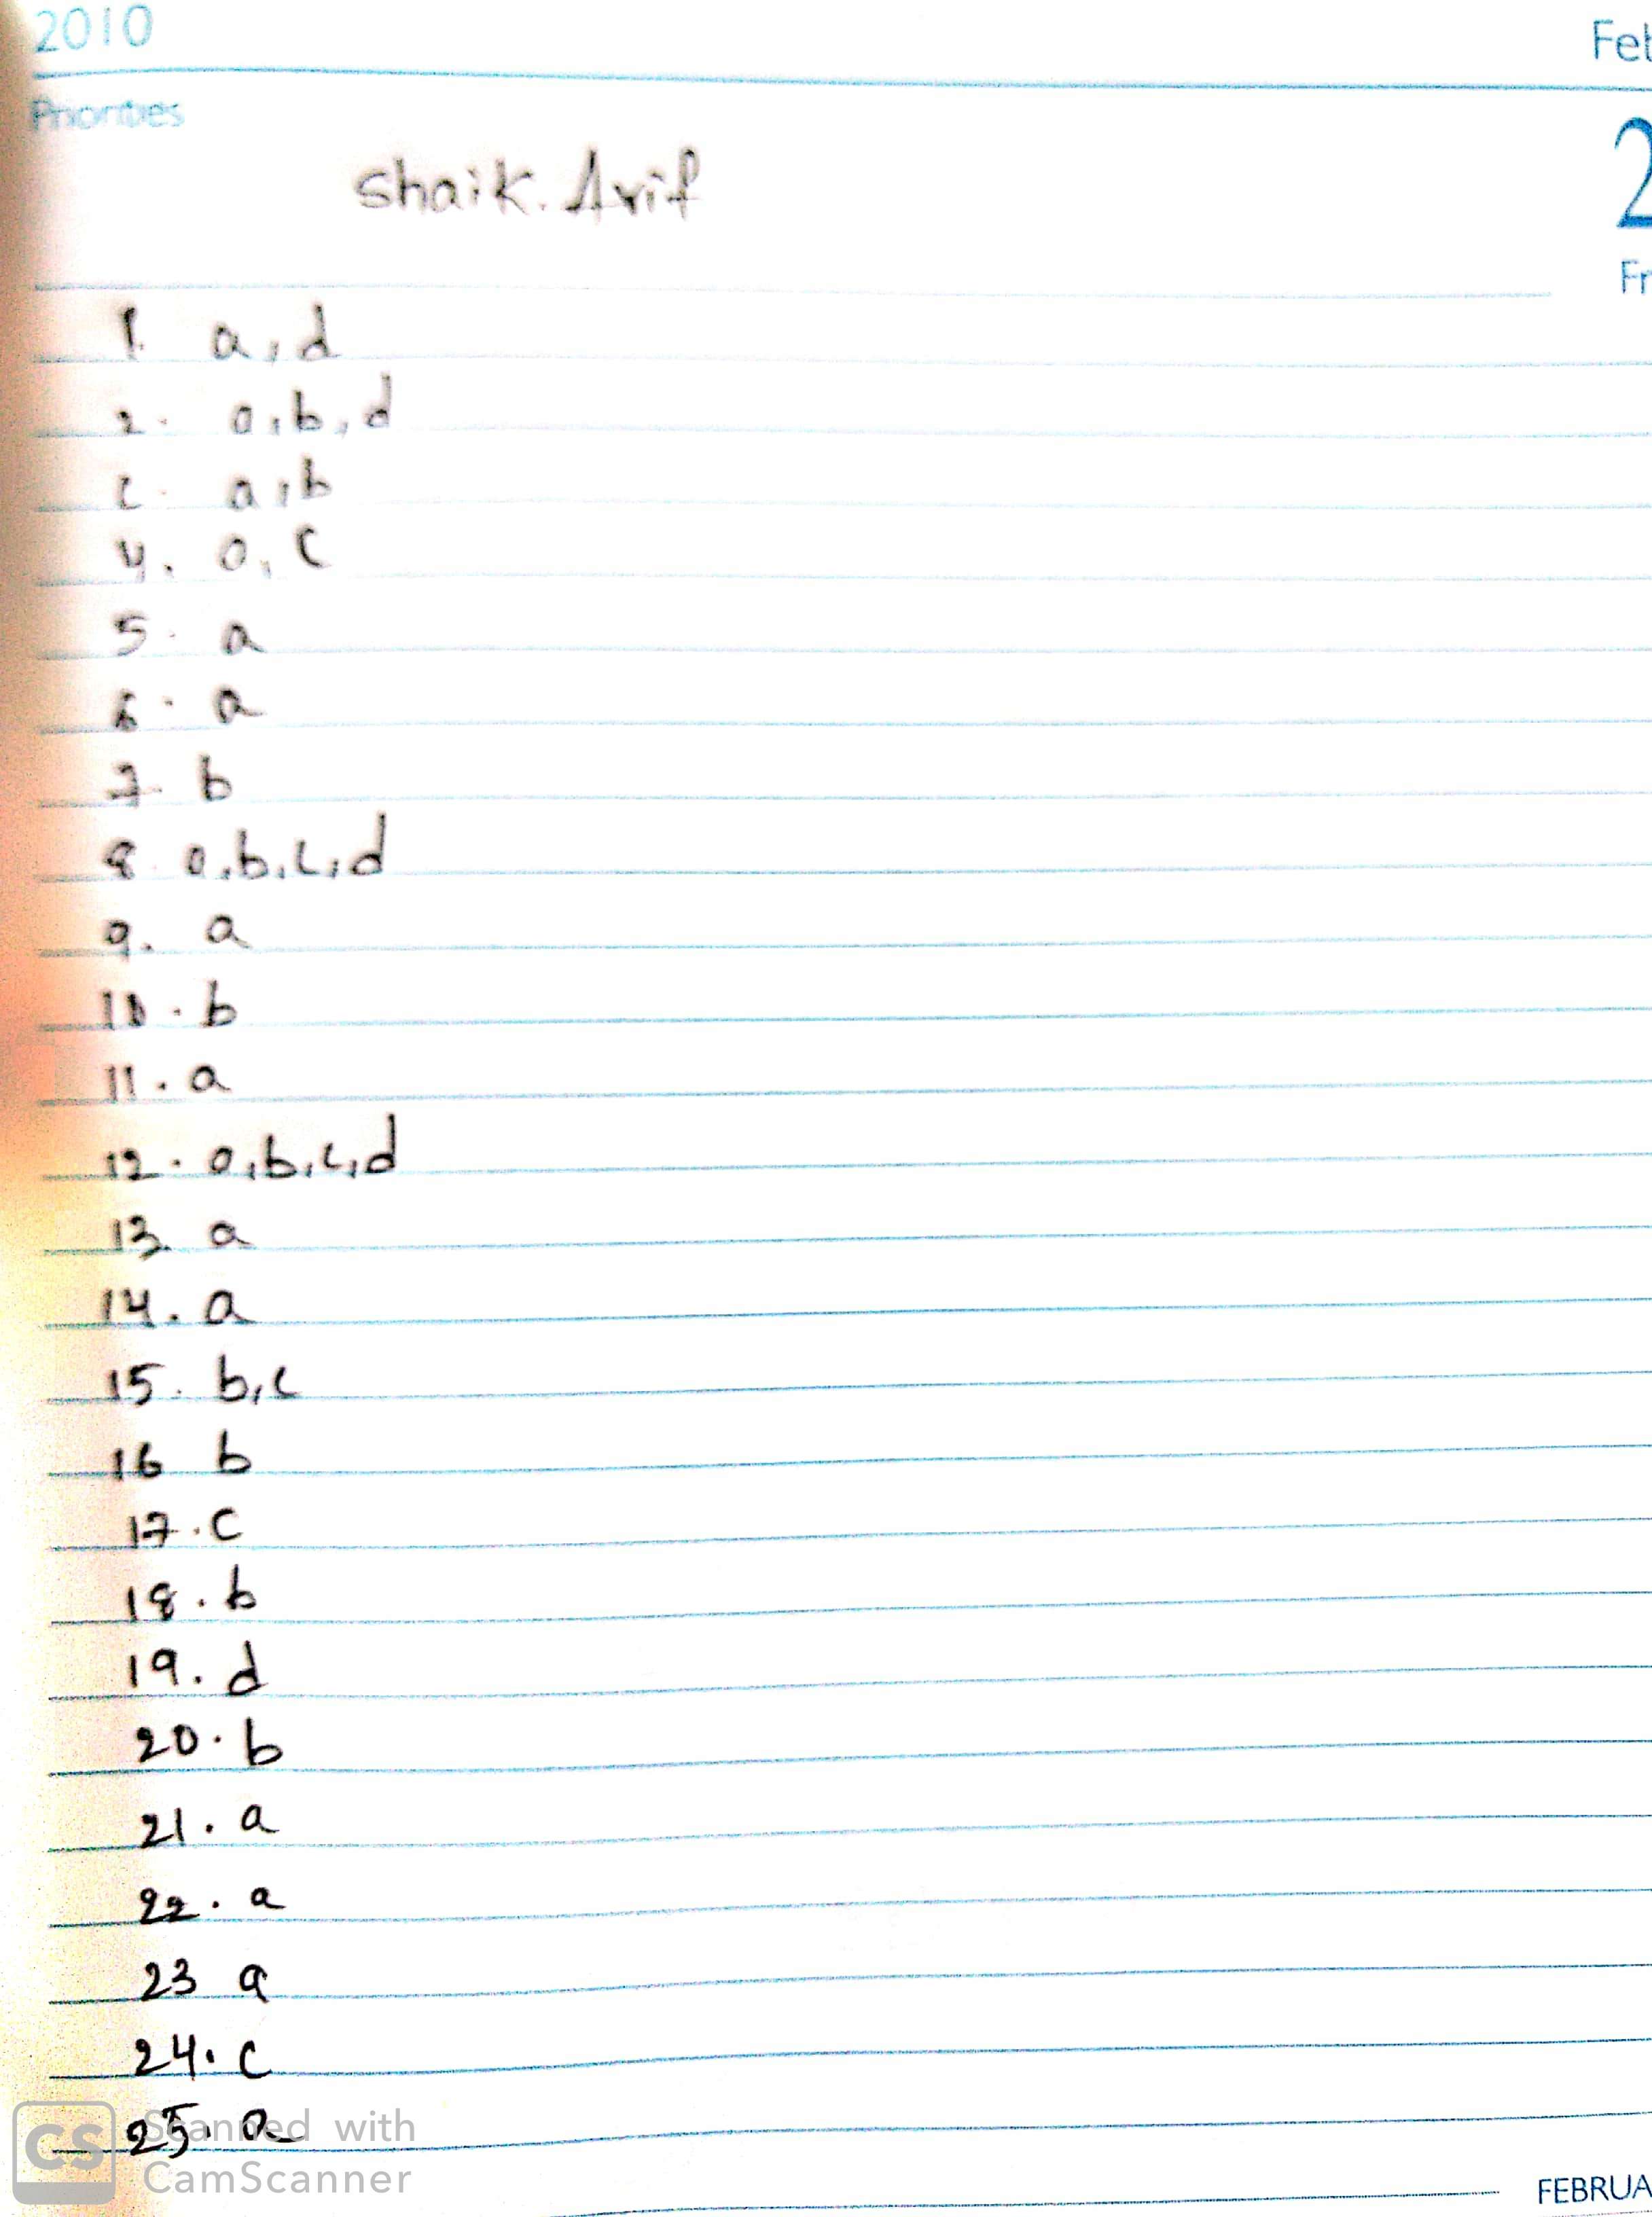 2010
Feb
Priorities
2
Shaik. Arif
Fr
1. a,d
2. a,b,d
3. a,b
4. a,c
5. a
6. a
7. b
8. a,b,c,d
9. a
10. b
11. a
12. a,b,c,d
13. a
14. a
15. b,c
16 b
17. c
18. b
19. d
20. b
21. a
22. a
23 a
24. c
25. a
Scanned with
CS
CamScanner
FEBRUA